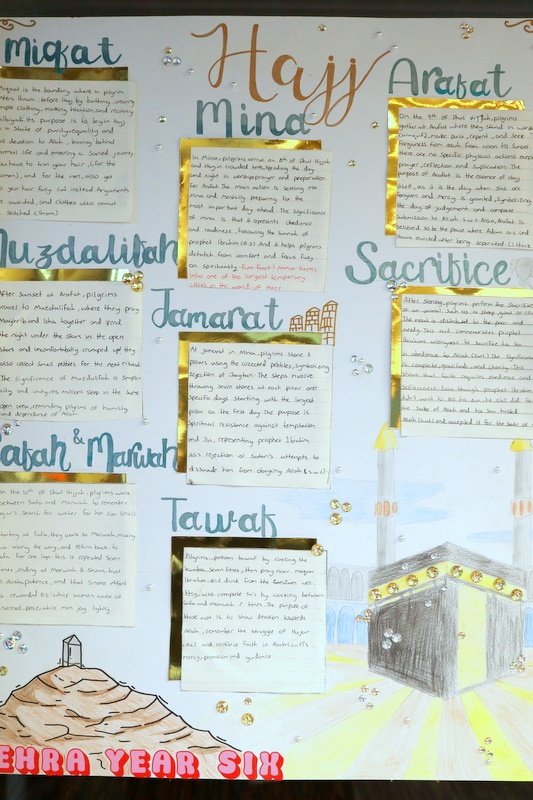 Hajj
Miqat
Miqaat is the boundary where a pilgrim
enters Ihram before Hajj by bathing, wearing
simple clothing, making intention, and reciting
Talbiyah. Its purpose is to begin Hajj
in a state of purity, equality, and
full devotion to Allah, leaving behind
normal life and entering a sacred journey
you have to trim your hair, (for the
women), and for the men, also yet
all your hair fully cut instead. Arguments
avoided, and clothes also cannot
stitched (Ihram)
Mina
In Mina, pilgrims arrive on 8th of Dhul Hijjah
and stay in crowded tents, spending the day
and night in worship, prayer and preparation
for Arafat. The main action is setting into
mina and mentally preparing for the
most important day ahead. The significance
of mina is that it represents obedience
and readiness, following the Sunnah of
prophet Ibrahim (A.S) And it helps pilgrims
detatch from comfort and focus fully
on spirituality. Fun fact! Mina turns
into one of the largest temporary
cities in the world of these
Arafat
On the 9th of Dhul Hijjah, pilgrims
gather at Arafat where they stand in worship
make dua, repent, and seek
forgiveness from Allah from noon till sunset
there are no specific physical actions except
prayer, reflection and supplication. The
purpose of Arafat is the essence of Hajj
itself, as it is the day when sins are
forgiven and mercy is granted, symbolizing
the day of judgement and complete
submission to Allah s.w.t. Also, Arafat is
believed to be the place where Adam a.s and
Hawa reunited after being seperated (I think
Muzdalifah
After Sunset at Arafat, pilgrims
travel to Muzdalifah, where they pray
Maghrib and Isha together and spend
the night under the stars in the open
stars and uncomfortably crumped up! they
also collect small pebbles for the next ritual
The significance of Muzdalifah is simpli-
city and unity, as millions sleep in the same
open area, reminding pilgrims of humility
and dependence of Allah.
Jamarat
At Jamarat in Mina, pilgrims stone 3
pillars using the collected pebbles, symbolizing
rejection of Shaytan. The steps involve
throwing seven stones at each pillar over
specific days. Starting with the largest
pillar on the first day. The purpose is
spiritual resistance against temptation
and sin, representing prophet Ibrahim
a.s's rejection of Satan's attempts to
dissuade him from obeying Allah (s.w.t)
Sacrifice
After Stoning, pilgrims perform the Sacrifice
of an animal such as a sheep, goat, or
The meat is distributed to the poor and
needy. This act commemorates prophet
Ibrahim's willingness to sacrifice his son
in obedience to Allah (s.w.t). The significance
is complete gratitude, and charity. This
shows that faith requires obedience and
selflessness. Even though prophet Ibrahim
didn't want to kill his son, he still did for
the sake of Allah and his son trusted
Allah (s.w.t) and accepted it for the sake of
Safah & Marwah
On the 10th of Dhul Hijjah, pilgrims walk
between Safa and Marwah to remember
Hajar's search for water for her son Ismail
Starting at Safa, they walk to Marwah, making
dua along the way, and return back to
Safa for one lap. this is repeated seven
times, ending at Marwah. It shows trust
in Allah, patience, and that sincere effort
is rewarded
normal pace, while men jog lightly
Tawaf
Pilgrims perform tawaf by circling the
Kaaba seven times, then pray near maqam
Ibrahim and drink from the ZamZam well.
They also complete sa'i by walking between
Safa and marwah 7 times. The purpose of
these acts is to show devotion towards
Allah, remember the struggle of Hajar
(as) and reinforce faith in Allah (s.w.t)'s
mercy, provision and guidance
EHRA YEAR SIX